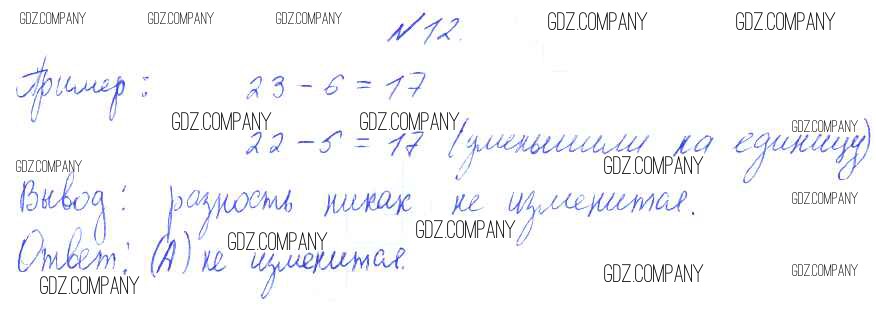 GDZ.COMPANY GDZ.COMPANY GDZ.COMPANY GDZ.COMPANY GDZ.COMPANY
№12.
Пример: 23 - 6 = 17
GDZ.COMPANY GDZ.COMPANY GDZ.COMPANY
22 - 5 = 17 (уменьшили на единицу)
GDZ.COMPANY GDZ.COMPANY
Вывод: разность никак не изменится. GDZ.COMPANY
GDZ.COMPANY GDZ.COMPANY
Ответ: (А) не изменится.
GDZ.COMPANY GDZ.COMPANY GDZ.COMPANY